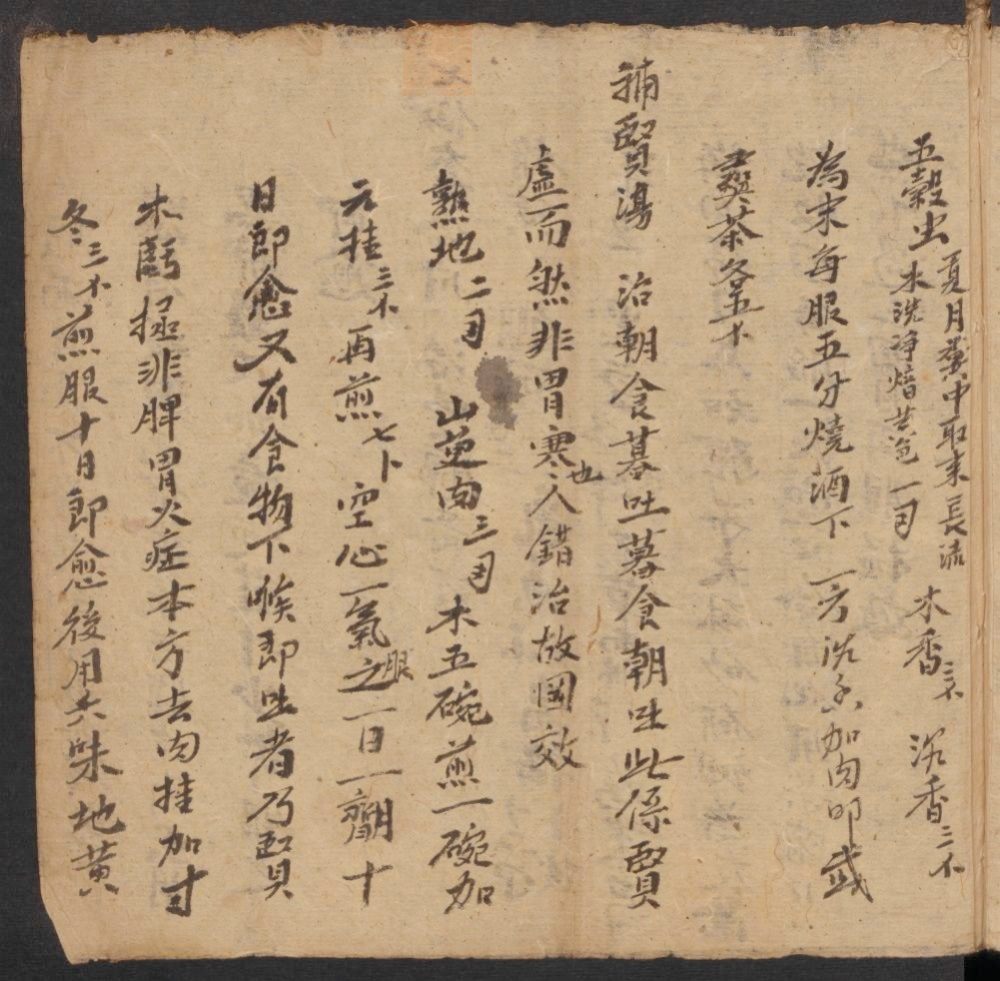 五穀虫 夏月糞中取來長流
水洗净焙黄色一㕥 木香三不 沉香三不
為末每服五分燒酒下 一方沉香加肉叩 或
茶各五不
補腎湯 治朝食暮吐暮食朝吐此係腎
虛而然非胃寒也人錯治故罔效
熟地二㕥 山萸肉三㕥 水五碗煎一碗加
元桂三不 再煎七卜 空心一氣服之一日一劑十
日即愈又有食物下喉即吐者乃腎
水虧 極非脾胃火症本方去肉桂加寸
冬三不煎服十日即愈後用六味地黄